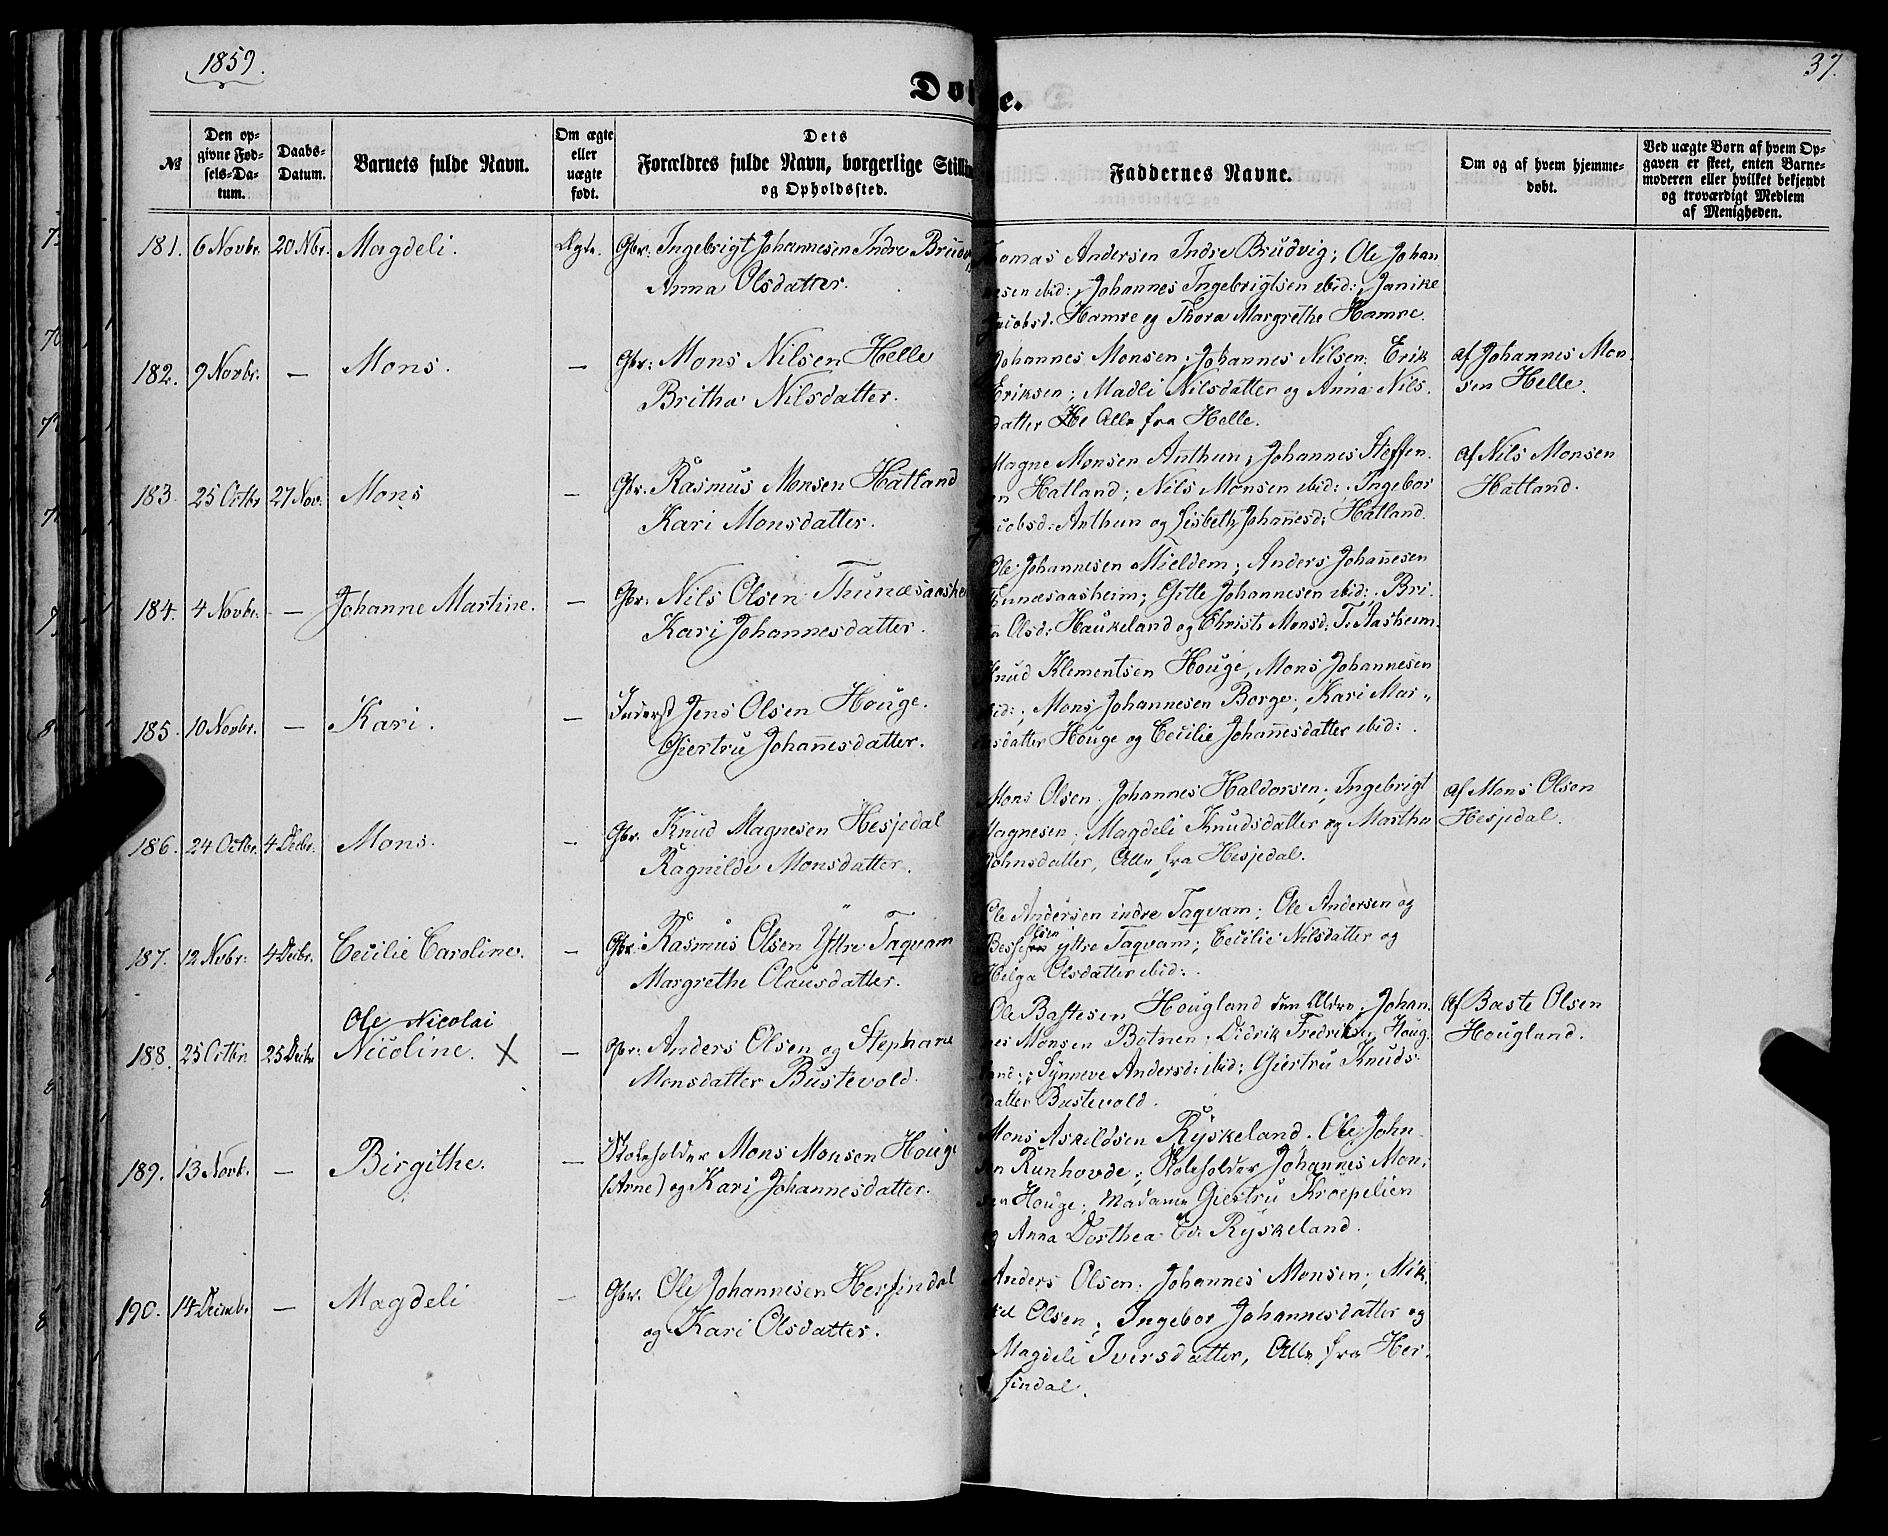 1859.
37.
Døbte.
№
Den opgivne Fødsels-Datum.
Daabs-Datum.
Barnets fulde Navn.
Om ægte eller uægte født.
Dets Forældres fulde Navn, borgerlige Stilling og Opholdssted.
Faddernes Navne.
Om og af hvem hjemmedøbt.
Ved uægte Børn af hvem Opgaven er skeet, enten Barnemoderen eller hvilket bekjendt og troværdigt Medlem af Menigheden.
181. 6 Novbr. 20 Nbr. Magdeli. Ægte. Gbr: Ingebrigt Johannesen Indre Brudv
Anna Olsdatter.
homas Andersen Indre Brudvig; Ole Johan
nsen ibid: Johannes Ingebrigtsen ibid: Janike
Jacobsd. Hamre og Thora Margrethe Hamre.
182. 9 Novbr. — Mons. — Gbr: Mons Nilsen Helle
Britha Nilsdatter.
Johannes Monsen; Johannes Nilsen; Erik
Eriksen; Madli Nilsdatter og Anna Nils.
datter Alle fra Helle.
af Johannes Mon.
sen Helle.
183. 25 Octbr 27 Nov: Mons — Gbr. Rasmus Monsen Hatland
Kari Monsdatter.
Magne Monsen Anthun; Johannes Steffen.
en Hatland; Nils Monsen ibid: Ingebor
acobsd: Anthun og Lisbeth Johan̅esd: Hatland.
af Nils Monsen
Hatland.
184. 4 Novbr. — Johanne Martine. — Gbr: Nils Olsen Thunæsaashei
Kari Johannesdatter.
Ole Johannesen Mieldem; Anders Johan̅esen
Thunæsaasheim; Gitle Johannesen ibid: Bri.
ta Olsd: Haukeland og Christi Monsd: T. Aasheim.
185. 10 Novbr. — Kari. — Inderst Jens Olsen Houge.
Giertru Johan̅esdatter.
Knud Klementsen Houge, Mons Johannesen
ibid:; Mons Johannesen Borge; Kari Mar-
ensdatter Houge og Cecilie Johan̅esdatter ibid:
186. 24 Octbr. 4 Decbr. Mons. — Gbr. Knud Magnesen Hesjedal
Ragnilde Monsdatter.
Mons Olsen. Johannes Haldorsen; Ingebrigt
Magnesen; Magdeli Knudsdatter og Martha
Johnsdatter, Alle fra Hesjedal.
af Mons Olsen
Hesjedal.
187. 12 Nvbr: 4 Decbr. Cecilie Caroline. — Gbr: Rasmus Olsen Yttre Taqvam
Margrethe Clausdatter.
Ole Andersen indre Taqvam; Ole Andersen og
Olsen yttre Taqvam; Cecilie Nilsdatter og
Helga Olsdatter ibid:.
Ole Nicolai
188. 25 Octbr. 25 Decbr Nicoline. X — Gbr: Anders Olsen og Stephane
Monsdatter Bustevold.
Ole Bastesen Hougland den Ældre; Johan.
nes Monsen Botnen; Didrik Fredrik Houg.
land:; Synneve Andersd: ibid; Giertru Knuds.
datter Bustevold.
Af Baste Olsen
Hougland.
189. 13 Novb. — Birgithe. — Skoleholder Mons Monsen Houge
(Arne) og Kari Johannesdatter.
Mons Askildsen Ryskeland. Ole John.
en Runhovde; Skoleholder Johannes Mon.
sen Houge; Madame Giertru Kroepelien
og Anna Dorthea Ryskeland.
190. 14 Decmb. — Magdeli — Gbr. Ole Johannesen Herfindal
og Kari Olsdatter.
Anders Olsen; Johannes Monsen; Mik.
kel Olsen; Ingebor Johannesdatter og
Magdeli Iversdatter, Alle fra Her.
findal.